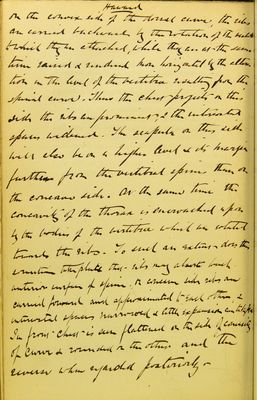 Howard
on the convex side of the dorsal curve, the ribs
are carried backward by the rotation of the vertebrae
to which they are attached, while they are at the same
time raised & rendered more horizontal by the altera
tion in the level of the vertebrae resulting from the
spinal curve. Thus the chest projects on this
side the ribs are prominent & the intercostal
spaces widened. The scapula on this side
will also be on a higher level & its margin
further from the vertebral spine than on
the concave side. At the same time the
concavity of the thorax is encroached upon
by the bodies of the vertebrae which are rotated
towards the ribs. To such an extent does this
sometimes take place the ribs may almost touch
anterior surface of spine. On concave side ribs are
carried forward and approximated to each other &
intercostal spaces narrowed & little expansion
In front chest is seen flattened on the side of convexity
of curve & rounded on the other and the
reverse when regarded posteriorly.